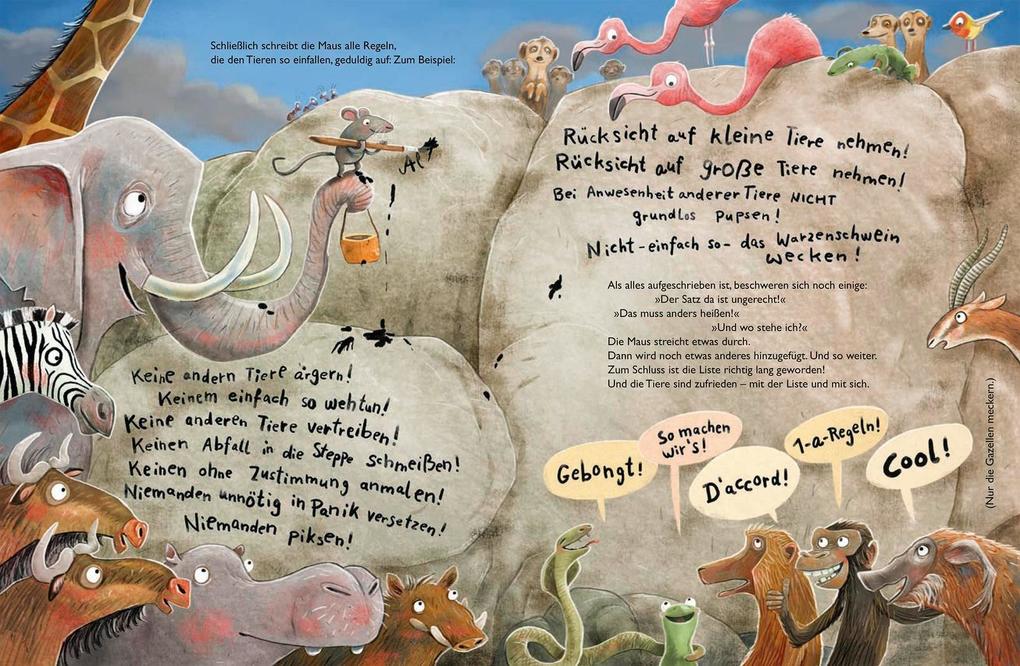 Schließlich schreibt die Maus alle Regeln,
die den Tieren so einfallen, geduldig auf: Zum Beispiel:
Keine andern Tiere ärgern!
Keinem einfach so wehtun!
Keine anderen Tiere vertreiben!
Keinen Abfall in die Steppe schmeißen!
Keinen ohne Zustimmung anmalen!
Niemanden unnötig in Panik versetzen!
Niemanden piksen!
Rücksicht auf kleine Tiere nehmen!
Rücksicht auf große Tiere nehmen!
Bei Anwesenheit anderer Tiere NICHT
grundlos pupsen!
Nicht-einfach so- das Warzenschwein
wecken!
Als alles aufgeschrieben ist, beschweren sich noch einige:
»Der Satz da ist ungerecht!«
»Das muss anders heißen!«
»Und wo stehe ich?«
Die Maus streicht etwas durch.
Dann wird noch etwas anderes hinzugefügt. Und so weiter.
Zum Schluss ist die Liste richtig lang geworden!
Und die Tiere sind zufrieden – mit der Liste und mit sich.
Gebongt!
So machen
wir's!
D'accord!
1-a-Regeln!
Cool!
(Nur die Gazellen meckern.)